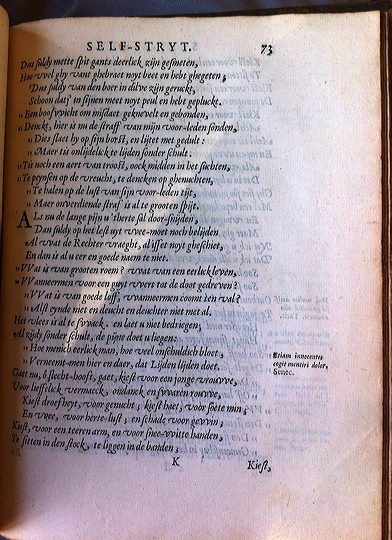 SELF-STRYT. 73
Dus suldy mette spit gants deerlick zijn gesmeten,
Hoe wel ghy vant ghebraet noyt beet en hebt ghegeten;
Dus suldy van den boer in dil've zijn geruckt,
Schoon datj' in sijnen meet noyt peul en hebt gepluckt.
„ Een boos'vvicht om misdaet geknevelt en gebonden,
„ Denckt, hier is nu de straff van mijn voor-leden sonden,
„ Dies slaet hy op sijn borst, en lijtet met gedult:
„ Maer tis onlijdelick te lijden sonder schult.
„ Tis noch een aert van troost, oock midden in het suchten,
„ Te peynsen op de vreucht, te dencken op ghenuchten,
„ Te halen op de lust van sijn voor-leden tijt,
„ Maer onverdiende straf is al te grooten spijt.
Als nu de lange pijn u 'therte sal door-snijden,
Dan suldy op het lest uyt vvee-moet noch belijden
Al wat de Rechter vraeght, al isset noyt gheschiet,
En dan is al u eer en goede naem te niet.
„ VVat is van grooten roem? vvat van een eerlick leven,
„ VVanneermen voor een guyt vvert tot de doot gedreven?
„ VVat is van goede loff, vvanneermen coomt ten val?
„ Alst eynde niet en deucht en deuchter niet met al.
Het vlees is al te svvack. en laet u niet bedriegen,
Al zijdy sonder schult, de pijne doet u liegen:
„ Hoe menich eerlick man, hoe veel onschuldich bloet,
„ Verneemt-men hier en daer, dat Lijden lijden doet.
Etiam innocentes
cogit mentiri dolor,
Senec.
Gaet nu, ô slecht-hooft, gaet, kiest voor een jonge vrouvve,
Voor lieffelick vermaeck, ondanck en svvaren rouvve,
Kiest droef heyt, voor genucht; kiest haet, voor soete min;
En vvee, voor herte-lust; en schade voor gevvin;
Kiest, voor een teeren arm, en voor snee-vvitte handen,
Te sitten in den stock, te liggen in de banden;
K Kiest,